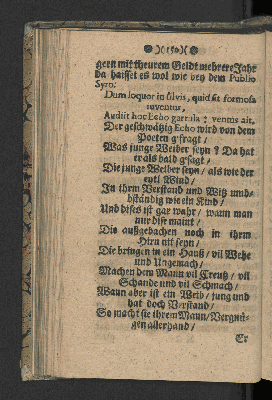 )( 150 )(
gern mit theurem Geldt mehrere Jahr
da haisset es wol wie bey dem Publio
Syro:
Dum loquor in silvis, quid sit formosa
juventus,
Audiit hoc Echo garrula: ventus ait.
Der geschwätzig Echo wird von dem
Poeten gfragt /
Was junge Weiber seyn? Da hat
er als bald gsagt /
Die junge Weiber seyn / als wie der
eytl Wind /
In ihrm Verstand und Witz unb-
ständig wie ein Kind /
Und dises ist gar wahr / wann man
nur dise maint /
Die außgebachen noch in ihrem
Hirn nit seyn /
Die bringen in ein Hauß / vil Wehe
und Ungemach /
Machen dem Mann vil Creutz / vil
Schande und vil Schmach /
Wann aber ist ein Weib / jung und
hat doch Verstand /
So macht sie ihrem Mann / Vergnü-
gen allerhand /
Er